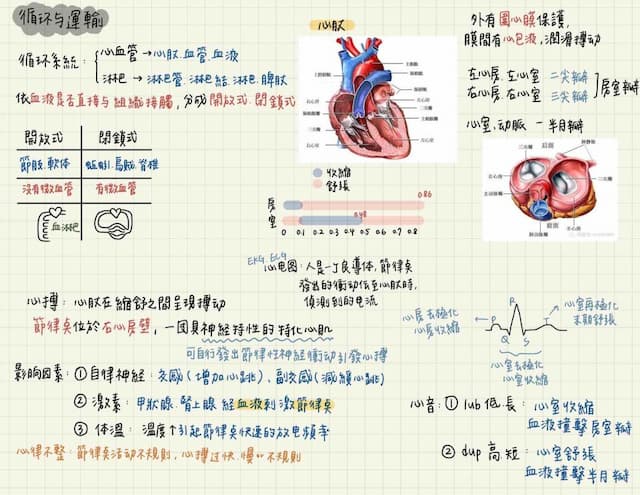 循环与運輸
循循系統：
心血管 → 心脏.血管.血液
淋巴 → 淋巴管.淋巴結.淋巴.脾臟
依血液是否直接与組織接觸，分成開放式.閉鎖式
開放式
閉鎖式
節肢.軟体
蚯蚓.烏賊.脊椎
沒有微血管
有微血管
血淋巴
心脏
主動脈
左心房
二尖瓣
左心室
右心房
三尖瓣
右心室
收縮
舒張
房
室
0.86
0.48
0 0.1 0.2 0.3 0.4 0.5 0.6 0.7 0.8
外有圍心膜保護，
膜間有心包液，潤滑搏动
左心房.左心室 二尖瓣
右心房.右心室 三尖瓣
房室瓣
心室.动脈 — 半月瓣
后面
三尖瓣
二尖瓣
前面
EKG, ECG
心电图：人是一丁良導体，節律点
發出的衝动传至心脏時，
偵測到的电流
心搏：心脏在縮舒之間呈現搏动
節律点位於右心房壁，一团具神經特性的特化心肌
可自行發出節律性神經衝动引發心搏
影响因素：① 自律神經：交感（增加心跳）、副交感（減緩心跳）
② 激素：甲狀腺.腎上腺 經血液刺激節律点
③ 体溫：溫度↑引起節律点快速的放电頻率
心律不整：節律点活动不規則，心搏过快.慢or不規則
P
R
Q
S
T
心房去極化
心房收縮
心室去極化
心室收縮
心室再極化
末期舒張
心音：① lub 低.長：心室收縮
血液撞擊房室瓣
② dup 高.短：心室舒張
血液撞擊半月瓣